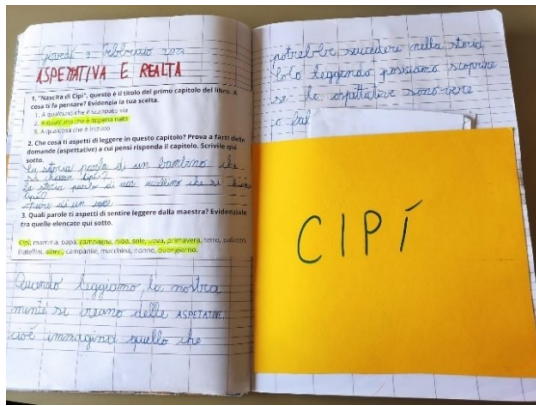 Giovedì 3 febbraio
ASPETTATIVA E REALTÀ
1. "Nascita di Cipì", questo è il titolo del primo capitolo del libro. A
cosa ti fa pensare? Evidenzia la tua scelta.
1. A qualcuno che è scappato via
2. A qualcuno che è appena nato
3. A qualcosa che è iniziato
2. Che cosa ti aspetti di leggere in questo capitolo? Prova a farti delle
domande (aspettative) a cui pensi risponda il capitolo. Scrivile qui
sotto.
La storia parla di un bambino che
si chiama Cipì?
La storia parla di un uccellino che si chiama
Cipì?
3. Quali parole ti aspetti di sentire leggere dalla maestra? Evidenziale
tra quelle elencate qui sotto.
Cipì, mamma, papà, campagna, nido, sole, uova, primavera, palazzo,
fratellini, campanile, macchina, nonno, buongiorno.
Quando leggiamo, la nostra
mente si creano delle ASPETTATIVE,
cioè immagina quello che
potrebbe succedere nella storia
Solo leggendo possiamo scoprire
se le aspettative sono vere
o
CIPÍ